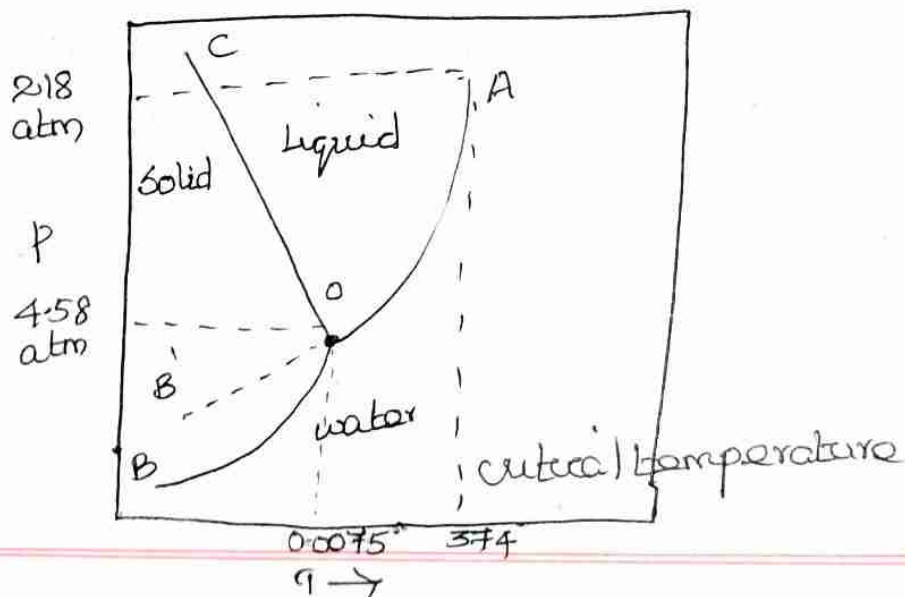 C
218
atm
A
Liquid
Solid
P
O
4.58
atm
B'
water
B
critical temperature
0.0075°
374
T →